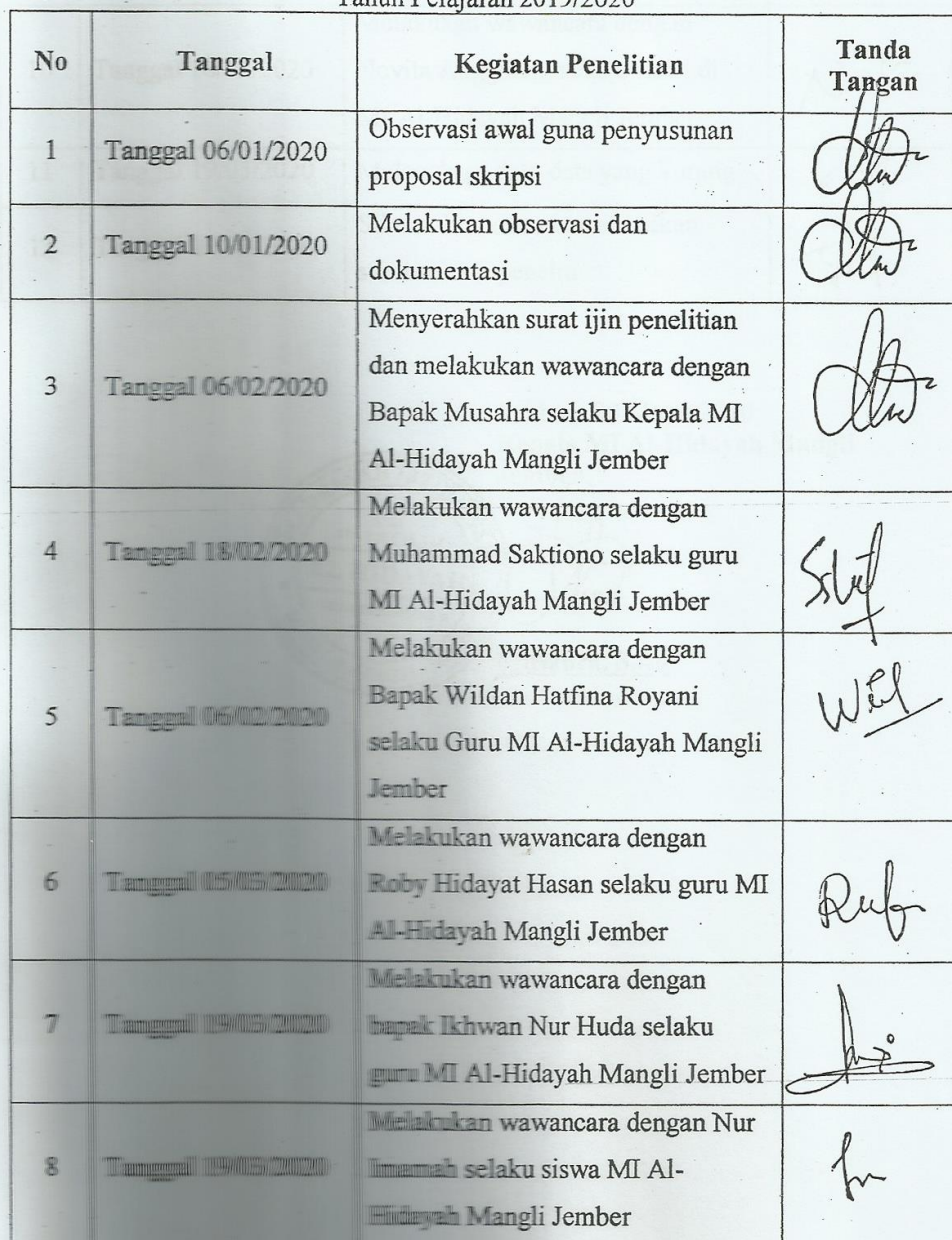 Tahun Pelajaran 2019/2020
No Tanggal Kegiatan Penelitian Tanda Tangan
1 Tanggal 06/01/2020 Observasi awal guna penyusunan
proposal skripsi
2 Tanggal 10/01/2020 Melakukan observasi dan
dokumentasi
3 Tanggal 06/02/2020 Menyerahkan surat ijin penelitian
dan melakukan wawancara dengan
Bapak Musahra selaku Kepala MI
Al-Hidayah Mangli Jember
4 Tanggal 18/02/2020 Melakukan wawancara dengan
Muhammad Saktiono selaku guru
MI Al-Hidayah Mangli Jember
5 Tanggal 06/02/2020 Melakukan wawancara dengan
Bapak Wildan Hatfina Royani
selaku Guru MI Al-Hidayah Mangli
Jember
6 Tanggal Melakukan wawancara dengan
Roby Hidayat Hasan selaku guru MI
Al-Hidayah Mangli Jember
7 Tanggal Melakukan wawancara dengan
bapak Ikhwan Nur Huda selaku
guru MI Al-Hidayah Mangli Jember
8 Tanggal Melakukan wawancara dengan Nur
Imamah selaku siswa MI Al-
Hidayah Mangli Jember